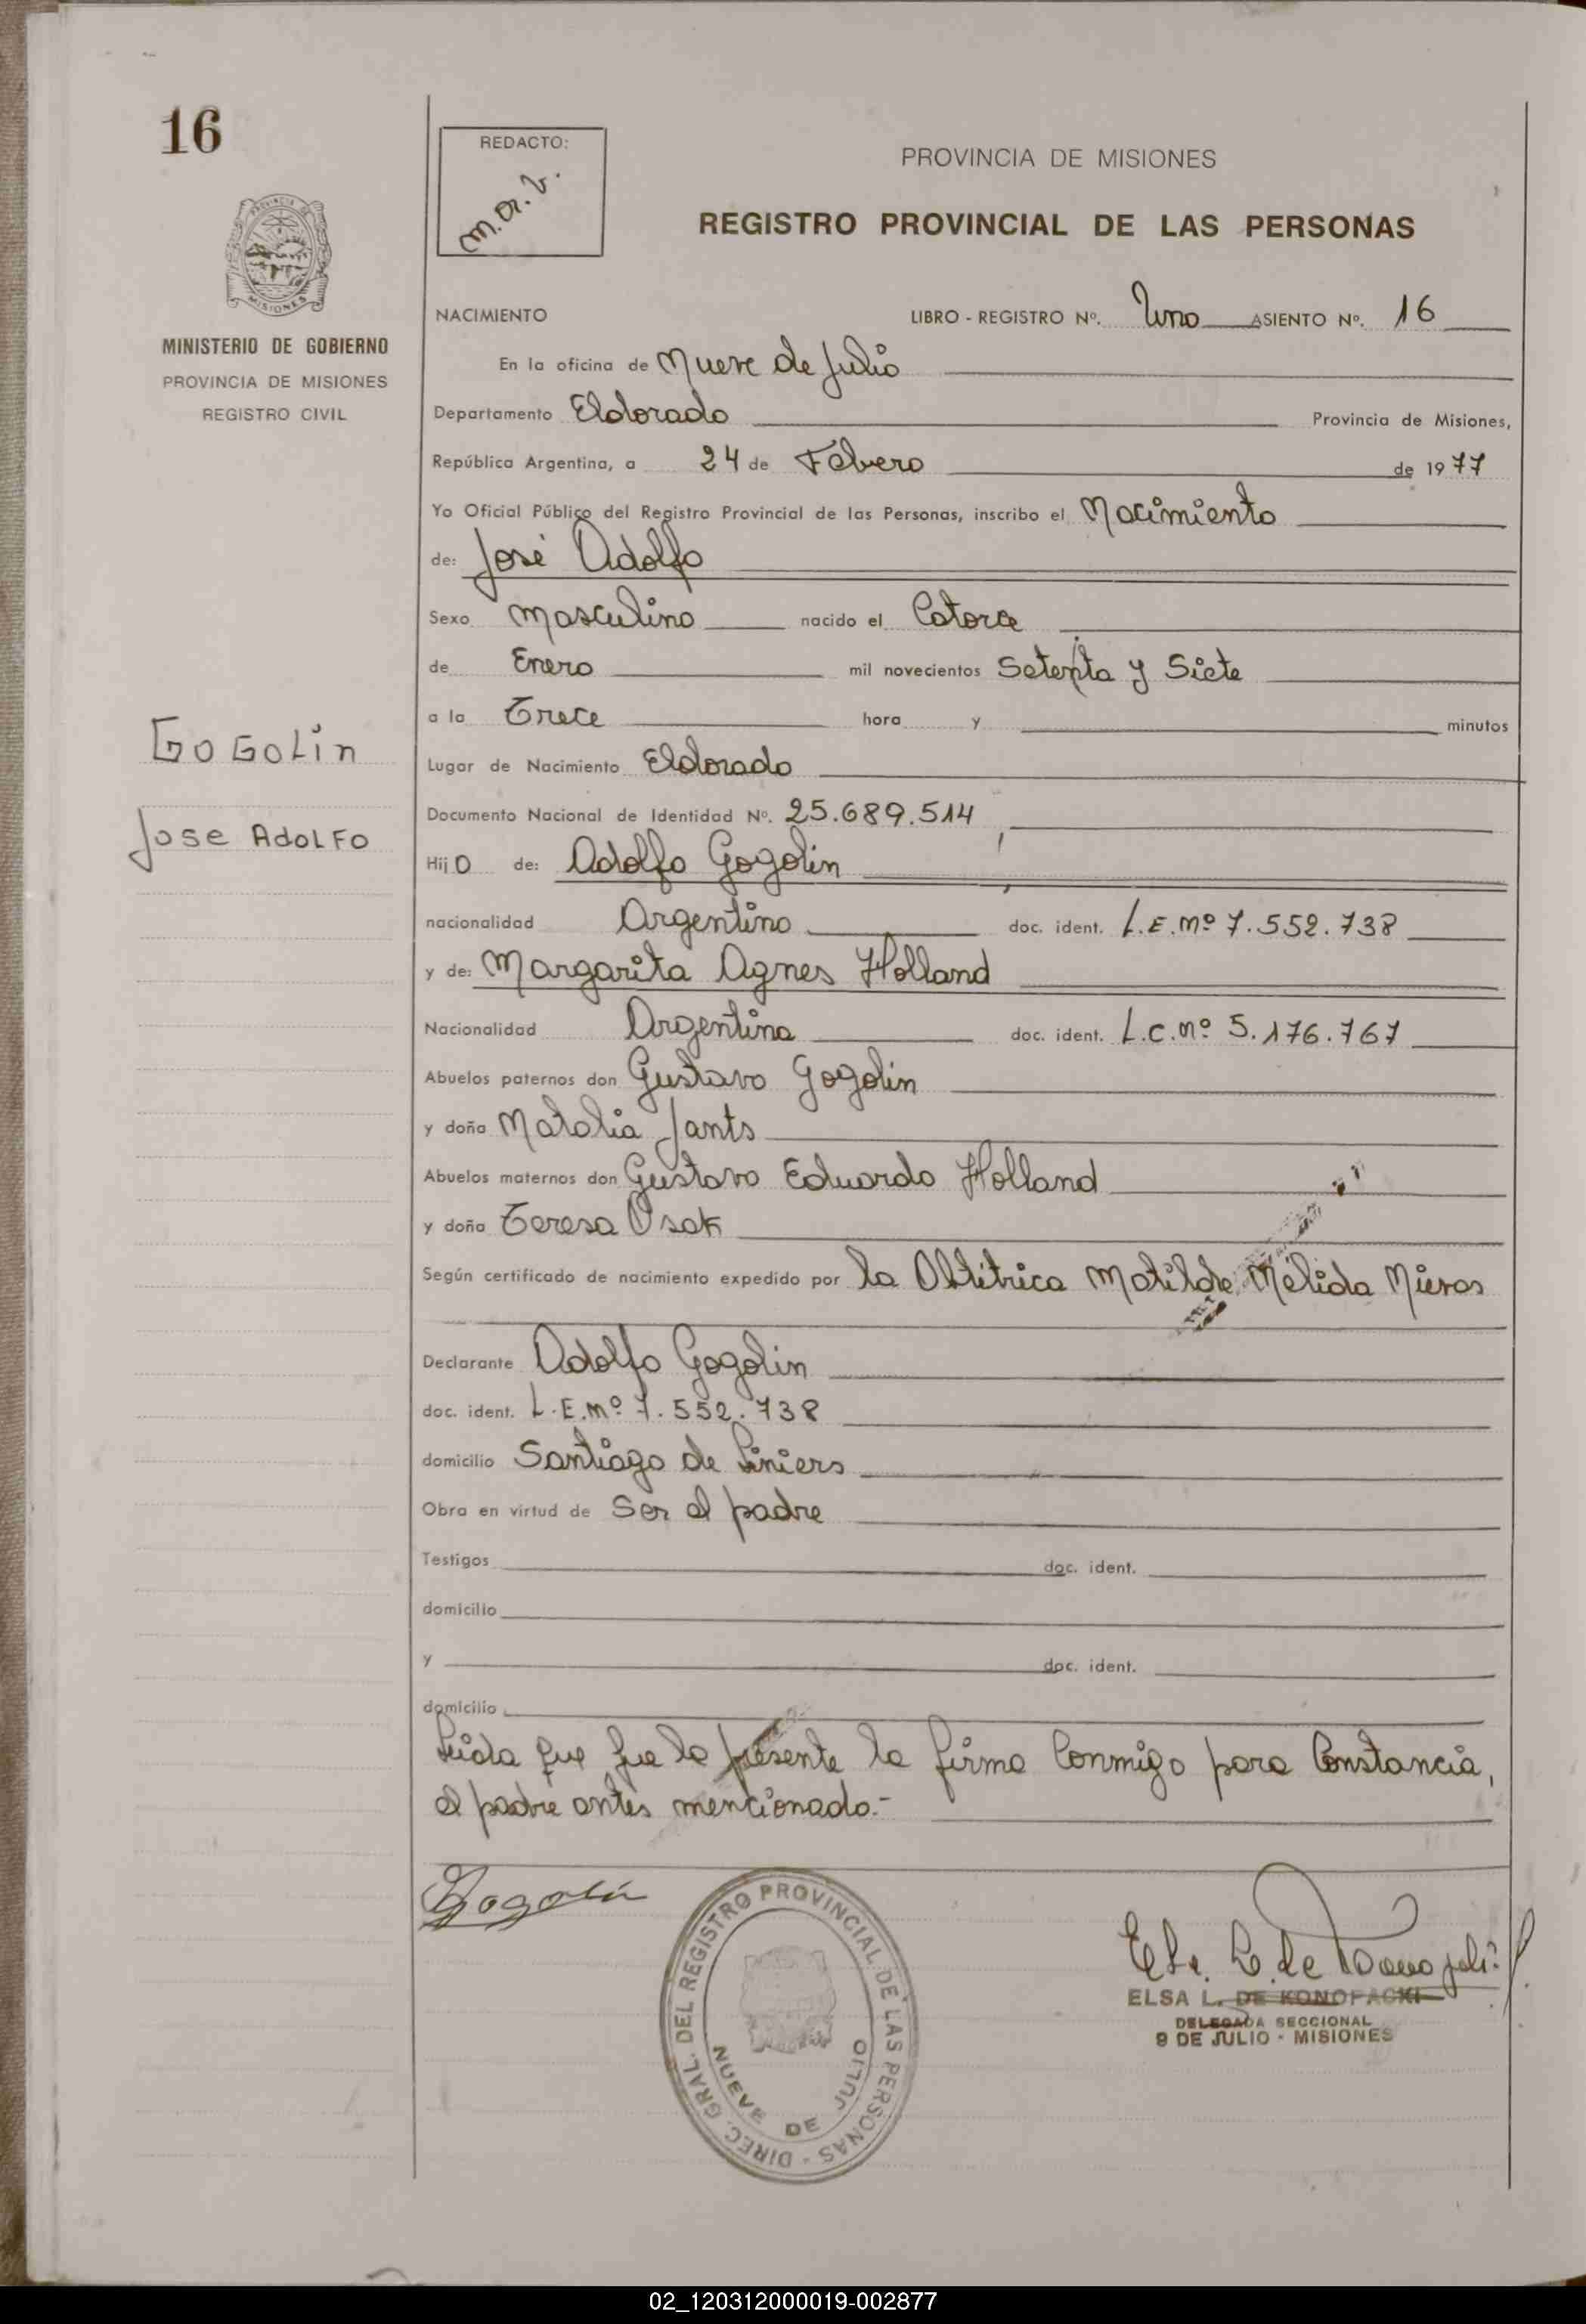 16
REDACTO:
M.A.V.
PROVINCIA DE MISIONES
REGISTRO PROVINCIAL DE LAS PERSONAS
PROVINCIA DE
MISIONES
MINISTERIO DE GOBIERNO
PROVINCIA DE MISIONES
REGISTRO CIVIL
NACIMIENTO LIBRO - REGISTRO Nº. Uno ASIENTO Nº. 16
En la oficina de Nueve de Julio
Departamento Eldorado Provincia de Misiones,
República Argentina, a 24 de Febero de 1977
Yo Oficial Público del Registro Provincial de las Personas, inscribo el Nacimiento
de: José Adolfo
Sexo Masculino nacido el Catorce
de Enero mil novecientos Setenta y Siete
a la Trece hora y minutos
GOGOLIN
Lugar de Nacimiento Eldorado
JOSE ADOLFO
Documento Nacional de Identidad Nº. 25.689.514
Hijo de: Adolfo Gogolin
nacionalidad Argentino doc. ident. L.E.Nº 7.552.738
y de: Margarita Agnes Holland
Nacionalidad Argentina doc. ident. L.C.Nº 5.176.767
Abuelos paternos don Gustavo Gogolin
y doña Natalia Jants
Abuelos maternos don Gustavo Eduardo Holland
y doña Teresa Osak
Según certificado de nacimiento expedido por la Obstitrica Matilde Nélida Nieves
Declarante Adolfo Gogolin
doc. ident. L.E.Nº 7.552.738
domicilio Santiago de Liniers
Obra en virtud de Ser el padre
Testigos doc. ident.
domicilio
y doc. ident.
domicilio
Leida que fue la presente la firma Conmigo para Constancia,
el padre antes mencionado.-
Gogolin
DIREC. GRAL. DEL REGISTRO PROVINCIAL DE LAS PERSONAS -
NUEVE DE JULIO
ELSA L. DE KONOPACKI
DELEGADA SECCIONAL
9 DE JULIO - MISIONES
02_120312000019-002877